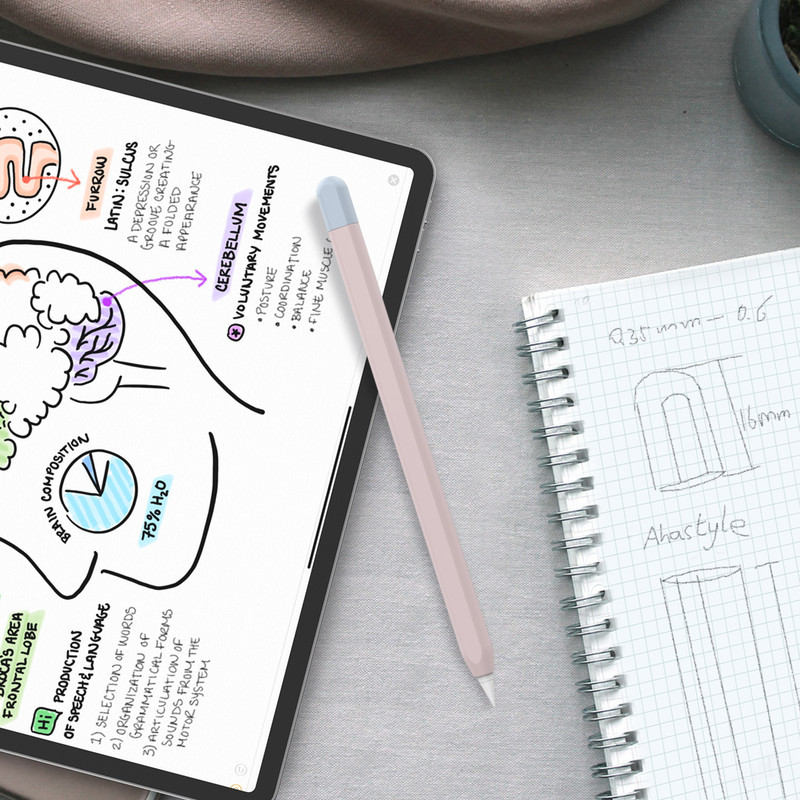 FURROW
LATIN: SULCUS
A DEPRESSION OR
GROOVE CREATING
A FOLDED
APPEARANCE
CEREBELLUM
VOLUNTARY MOVEMENTS
• POSTURE
• COORDINATION
• BALANCE
• FINE MUSCLE
BRAIN COMPOSITION
75% H₂O
BROCA'S AREA
FRONTAL LOBE
Hi
PRODUCTION
OF SPEECH & LANGUAGE
1) SELECTION OF WORDS
2) ORGANIZATION OF
GRAMMATICAL FORMS
3) ARTICULATION OF
SOUNDS FROM THE
MOTOR SYSTEM
0.35 mm — 0.6
16mm
Ahastyle